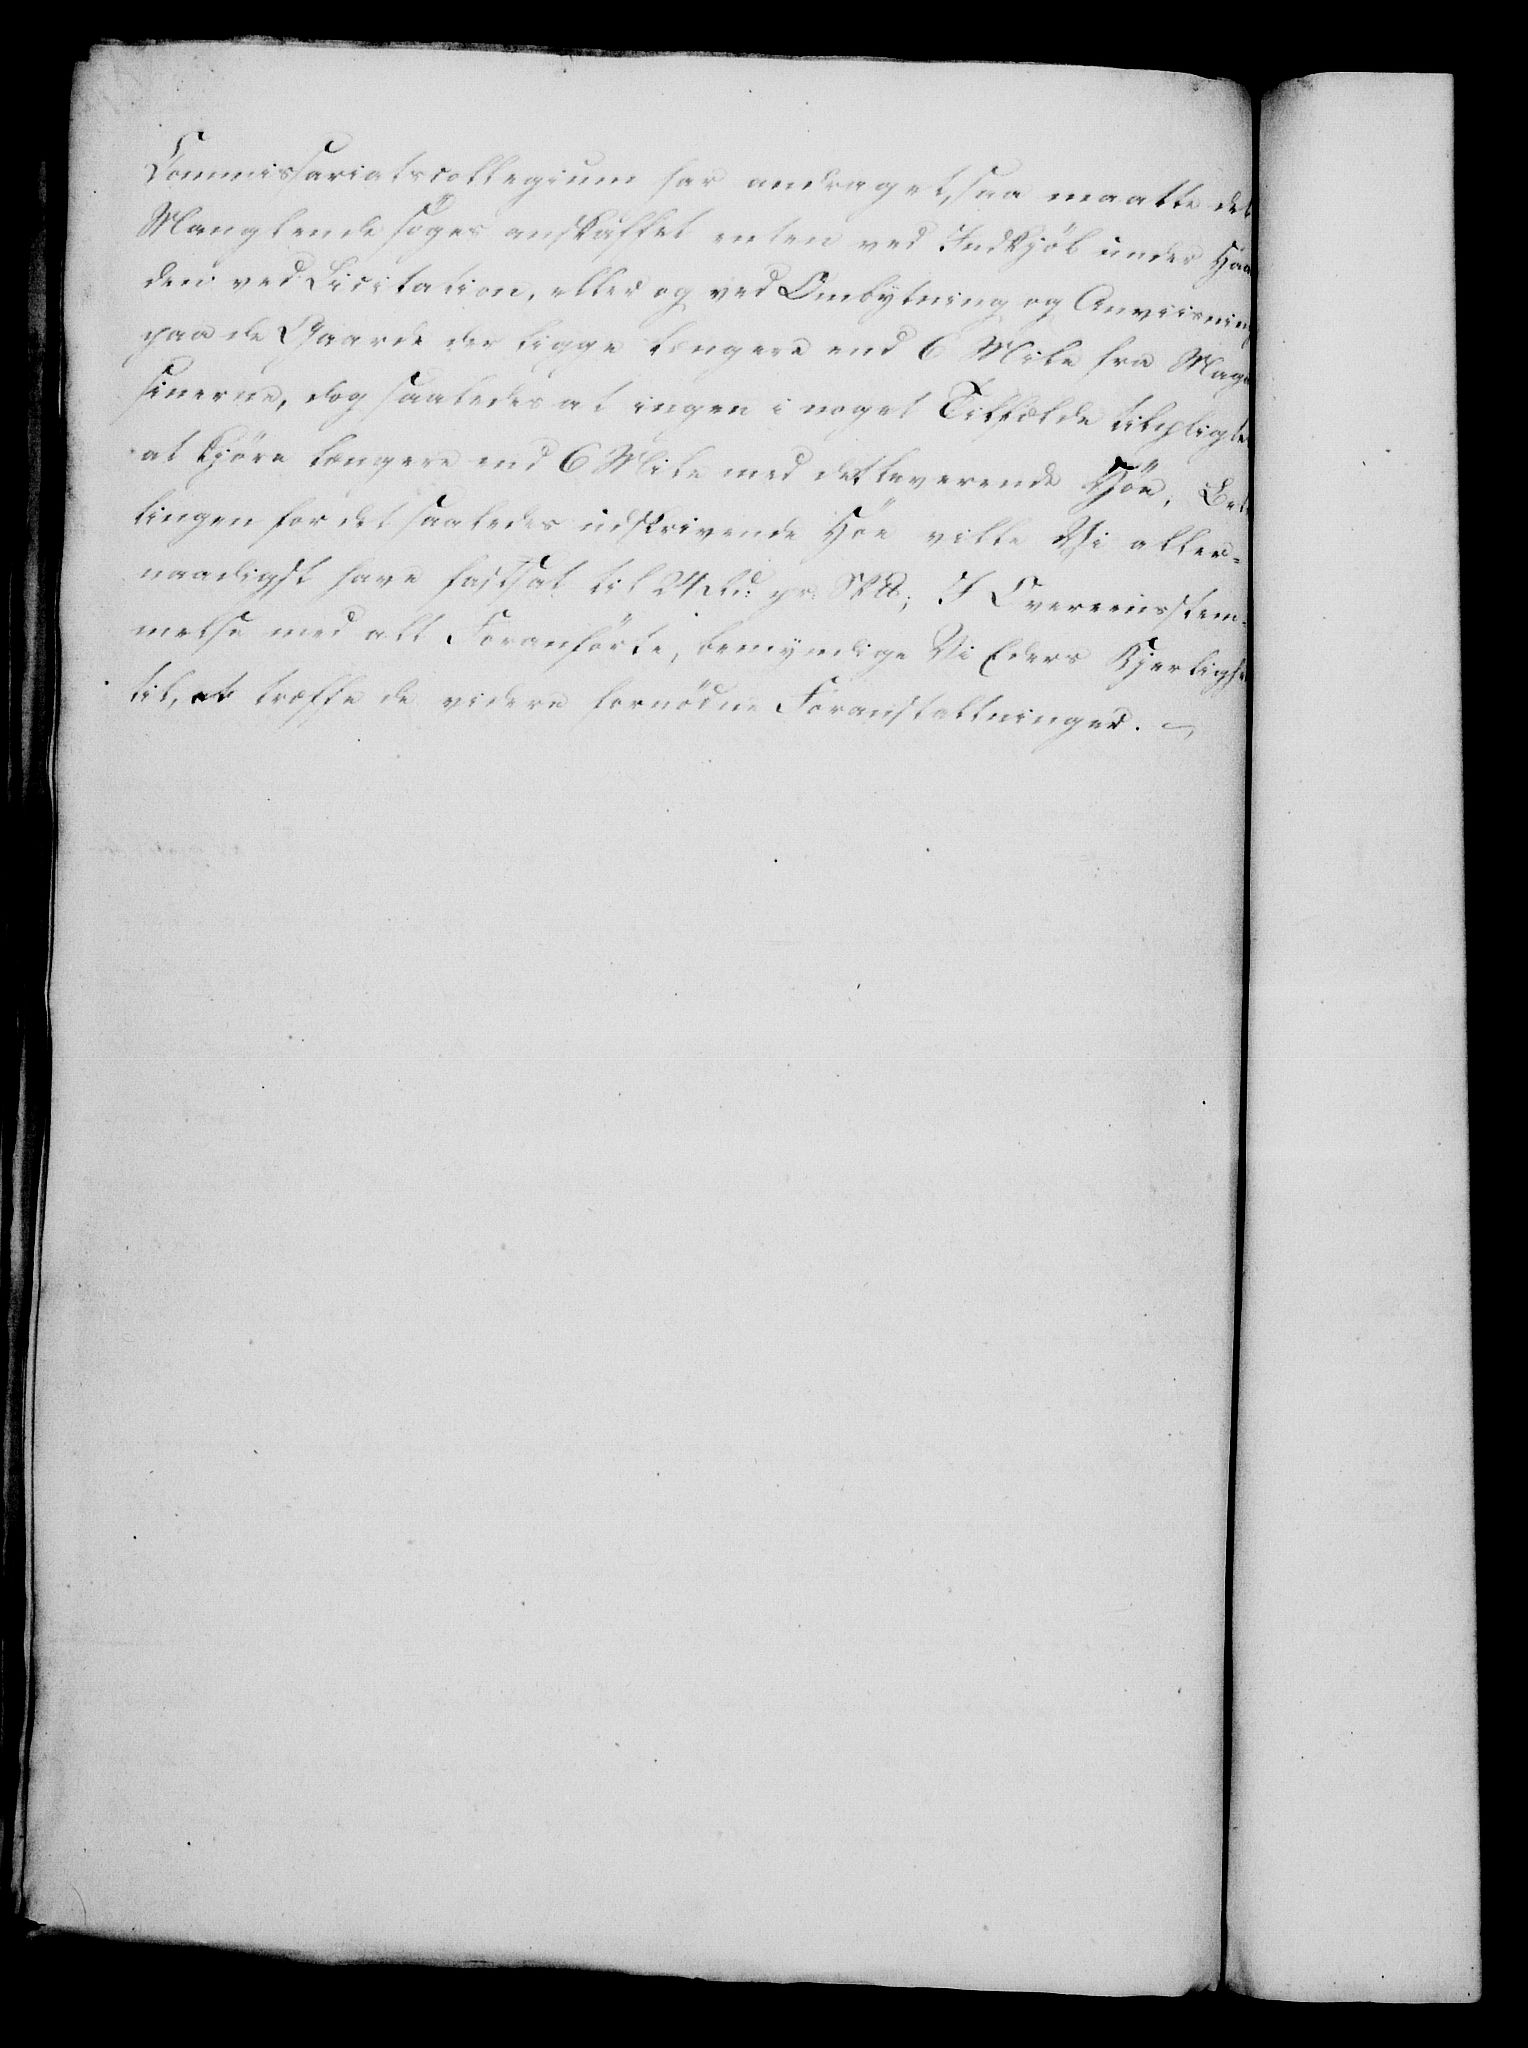 Commissariatscollegium har andraget, saa maatte det
Manglende söges anskaffet enten ved Indkjöb under Haa
den ved Licitation, eller og ved Ombytning og Anviisning
paa de Gaarde der ligge længere end 6 Mile fra Maga
sinerne, dog saaledes at ingen i noget Tilfælde tilpligte
at kjöre længere end 6 Mile med det leverende Höe, Beta
lingen for det saaledes udskrivende Höe ville Vi aller-
naadigst have fastsat til 24 pr. Sk℔; I Overeensstem-
melse med alt Foranförte, bemyndige Vi Eders Kjerlighe
til, at træffe de videre fornödne Foranstaltninger.